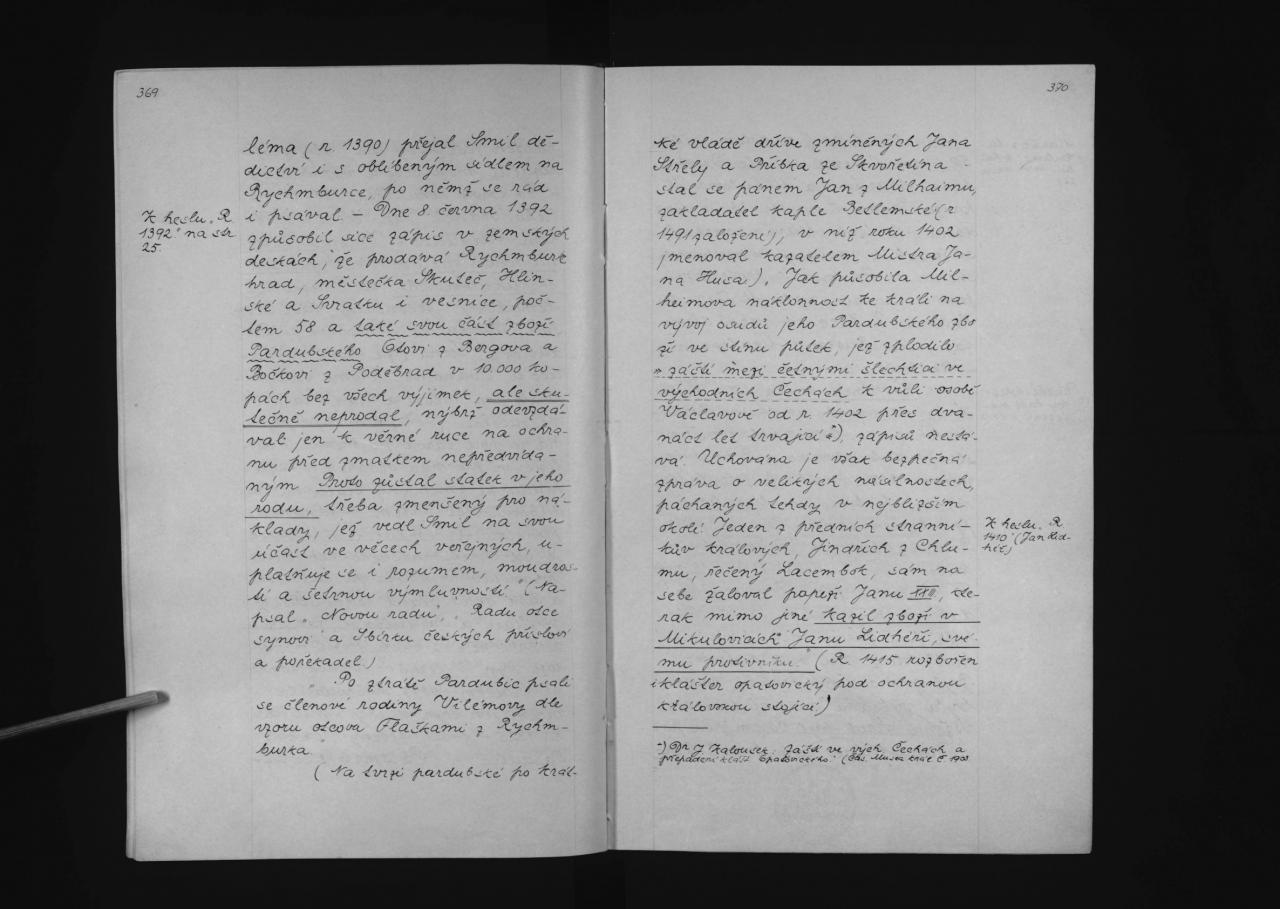 369
léma (r. 1390) přejal Smil dě-
dictví i s oblíbeným sídlem na
Rychmburce, po němž se rád
i psával. – Dne 8. června 1392
způsobil sice zápis v zemských
deskách, že prodává Rychmburk
hrad, městečka Skuteč, Hlin-
ské a Svratku i vesnice, poč-
tem 58 a také svou část zboží
Pardubského Otovi z Bergova a
Bočkovi z Poděbrad v 10.000 ko-
pách bez všech výjimek, ale sku-
tečně neprodal, nýbrž odevzdá-
val jen k věrné ruce na ochra-
nu před zmatkem nepředvída-
ným. Proto zůstal statek v jeho
rodu, třeba zmenšený pro ná-
klady, jež vedl Smil na svou
účast ve věcech veřejných, u-
platňuje se i rozumem, moudros-
tí a šetrnou výmluvností." (Na-
psal „Novou radu", „Radu otce
synovi" a Sbírku českých přísloví
a pořekadel.)
Po ztrátě Pardubic psali
se členové rodiny Vilémovy dle
vzoru otcova Flaškami z Rychm-
burka.
(Na tvrzi pardubské po krát-
K heslu „R.
1392" na str
25.
370
ké vládě dříve zmíněných Jana
Střely a Přibka ze Skvořetína
stal se pánem Jan z Milhaimu,
zakladatel kaple Betlemské (r
1491 založení), v níž roku 1402
jmenoval kazatelem Mistra Ja-
na Husa.). Jak působila Mil-
heimova náklonnost ke králi na
vývoj osudů jeho Pardubského zbo
ží ve stínu půtek, jež zplodilo
„záští mezi četnými šlechtici ve
východních Čechách k vůli osobě
Václavově od r. 1402 přes dva-
náct let trvající*), zápisů nestá-
vá. Uchována je však bezpečná
zpráva o velikých násilnostech,
páchaných tehdy v nejbližším
okolí. Jeden z předních stranní-
kův králových, Jindřich z Chlu-
mu, řečený Lacembok, sám na
sebe žaloval papeži Janu XXIII, kte-
rak mimo jiné kazil zboží v
Mikulovicích" Janu Lidhéři, své-
mu protivníku." (R. 1415 rozbořen
i klášter opatovický pod ochranou
královskou stojící.)
K heslu „R.
1410" (Jan Lid-
héř)
*) Dr J. Kalousek: Záští ve vých. Čechách a
přepadení klášt. Opatovického." (Čas. Musea král. Č. 1903